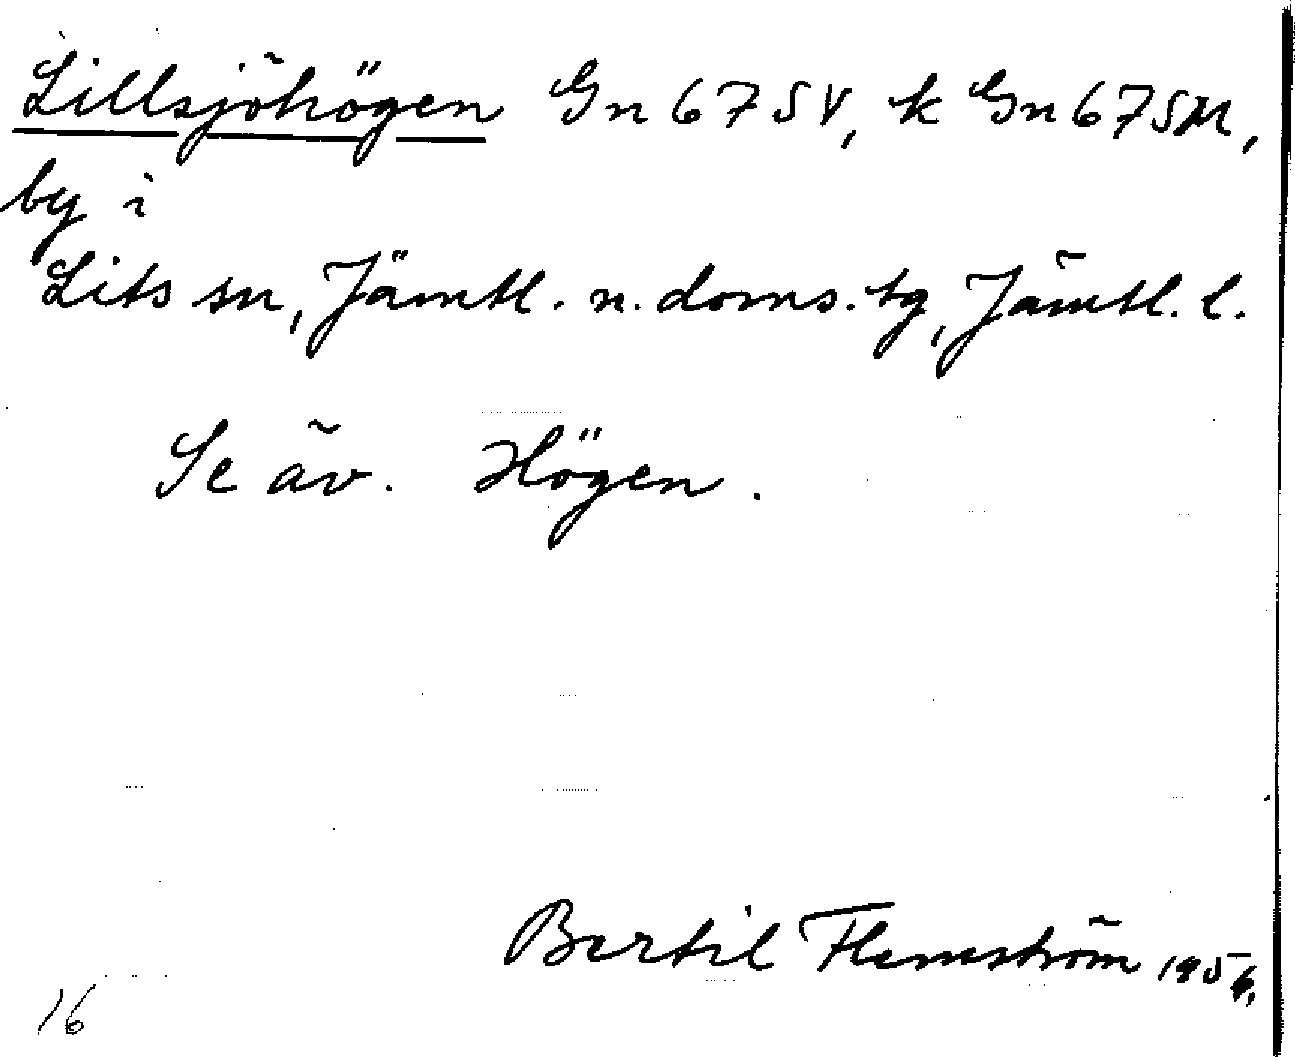 Lillsjöhögen Gn 67 SV, k Gn 67 SM,
by i
Lits sn, Jämtl. n. doms. tg, Jämtl. l.
Se äv. Högen.
Bertil Flemström
16